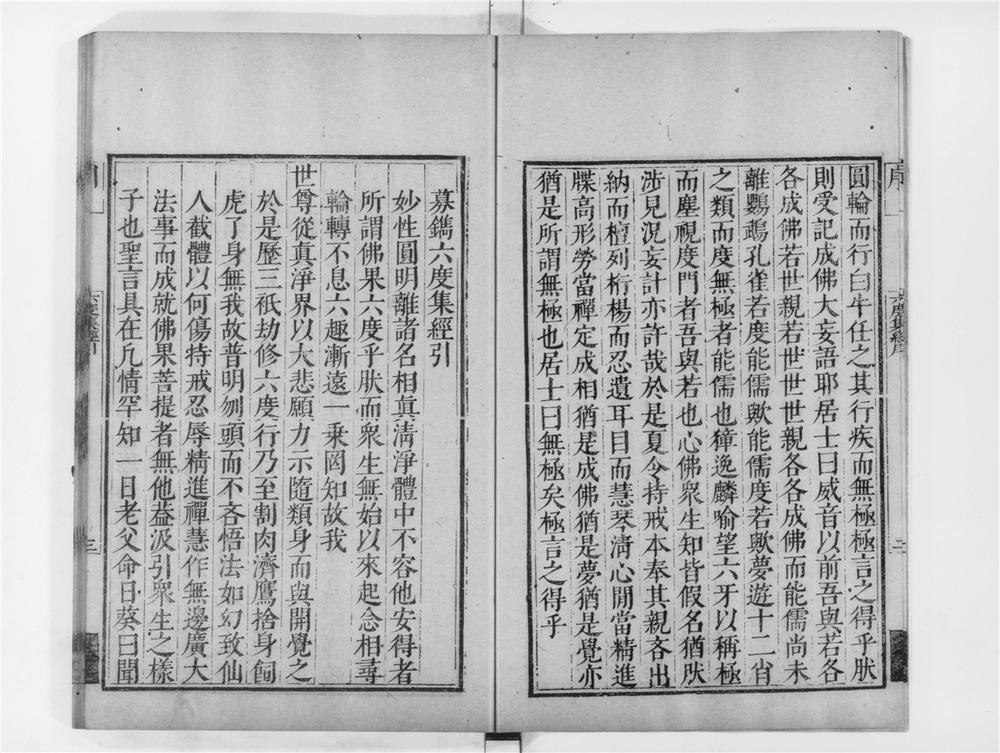 圓輪而行曰牛任之其行疾而無極極言之得乎肰
則受記成佛大妄語耶居士曰威音以前吾與若各
各成佛若世親若世世世親各各成佛而能儒尚未
離鸚鵡孔雀若度能儒歟能儒度若歟夢遊十二肖
之類而度無極者能儒也獐逸麟喻望六牙以稱極
而塵視度門者吾與若也心佛衆生知皆假名猶肰
涉見況妄計亦許哉於是夏令持戒本奉其親吝出
納而檀列桁楊而忍遺耳目而慧琴淸心閒當精進
牒高形勞當禪定成相猶是成佛猶是夢猶是覺亦
猶是所謂無極也居士曰無極矣極言之得乎
六度集經序
二
募鐫六度集經引
妙性圓明離諸名相眞淸淨體中不容他安得者
所謂佛果六度乎肰而衆生無始以來起念相尋
輪轉不息六趣漸遠一乘罔知故我
世尊從眞淨界以大悲願力示隨類身而與開覺之
於是歷三祇劫修六度行乃至割肉濟鷹捨身飼
虎了身無我故普明刎頭而不吝悟法如幻致仙
人截體以何傷持戒忍辱精進禪慧作無邊廣大
法事而成就佛果菩提者無他葢汲引衆生之樣
子也聖言具在凡情罕知一日老父命日葵曰聞
六度集經引
三